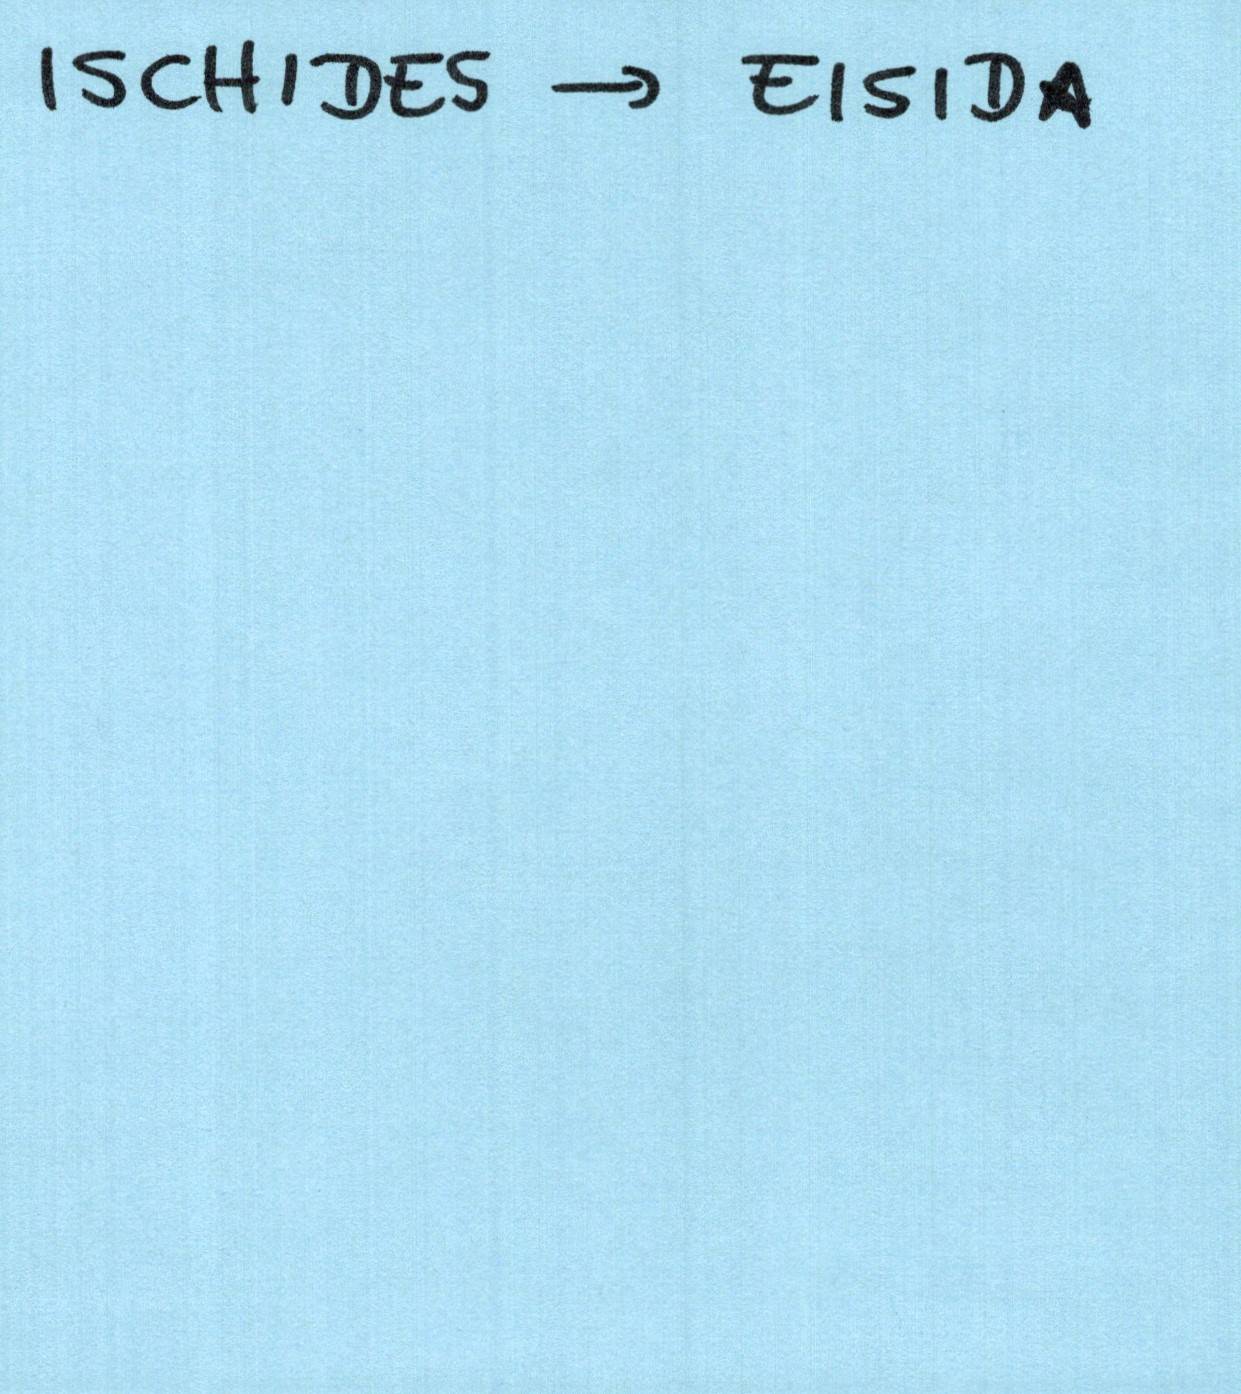 ISCHIDES → EISIDA